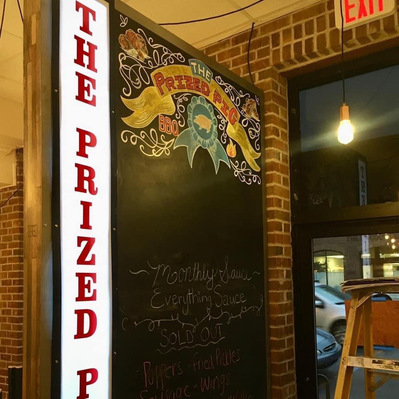 EXIT
THE PRIZED P
THE
PRIZED PIG
BBQ
Monthly Sauce
Everything Sauce
SOLD OUT
Poppers - Fried Pickles
Wings